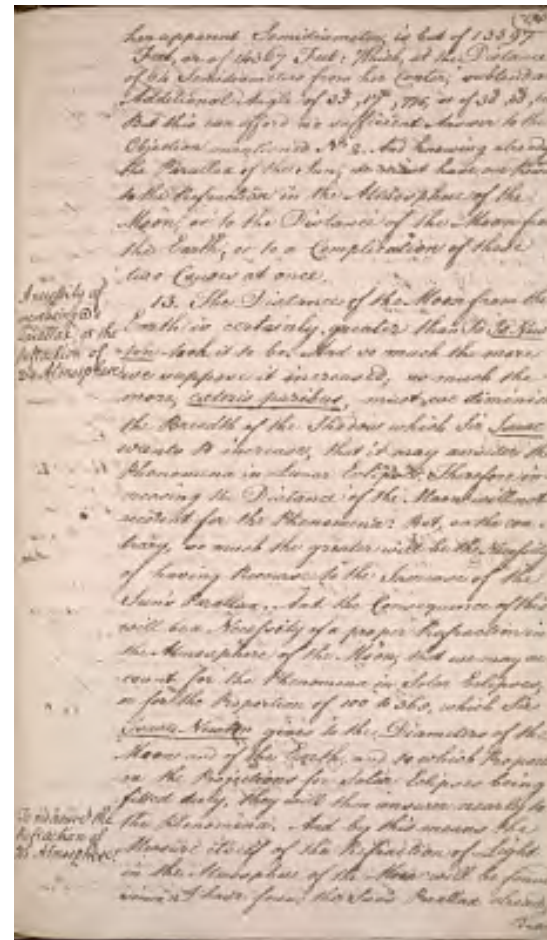 her apparent Semidiameter, is but of 13397
Feet, or of 14367 Feet: Which, at the Distance
of 64 Semidiameters from her Center, subtend an
Additional Angle of
But this can afford no sufficient Answer to the
Objection mentioned Nº 2. And knowing already
the Parallax of the Sun, we must have
to the Refraction in the Atmosphere of the
Moon, or to the Distance of the Moon from
the Earth, or to a Complication of these
two Causes at once.
13. The Distance of the Moon from the
Earth is certainly greater than
took it to be. And so much the more
we suppose it increased, so much the
more, cæteris paribus, must we diminish
the Breadth of the Shadow which Sir Isaac
wants to increase, that it may answer the
Phenomena in Lunar Eclipses. Therefore in-
creasing the Distance of the Moon will not
account for the Phenomena: But, on the con-
trary, so much the greater will be the Necessity
of having Recourse to the Increase of the
Sun's Parallax. And the Consequence of this
will be a Necessity of a proper Refraction in
the Atmosphere of the Moon, that we may ac-
count for the Phenomena in Solar Eclipses,
or for the Proportion of 100 to 360, which Sir
Isaac Newton gives to the Diameters of the
Moon and of the Earth, and to which Propor
in the Projections for Solar Eclipses being
fitted duly, they will then answer nearly to
the Phenomena. And by this means the
Measure itself of the Refraction of Light
in the Atmosphere of the Moon will be found
since I have from the Sun's Parallax already
A necessity of
increasing
Parallax, or the
Refraction of
Atmosphere
the
Refraction of
Atmosphere.